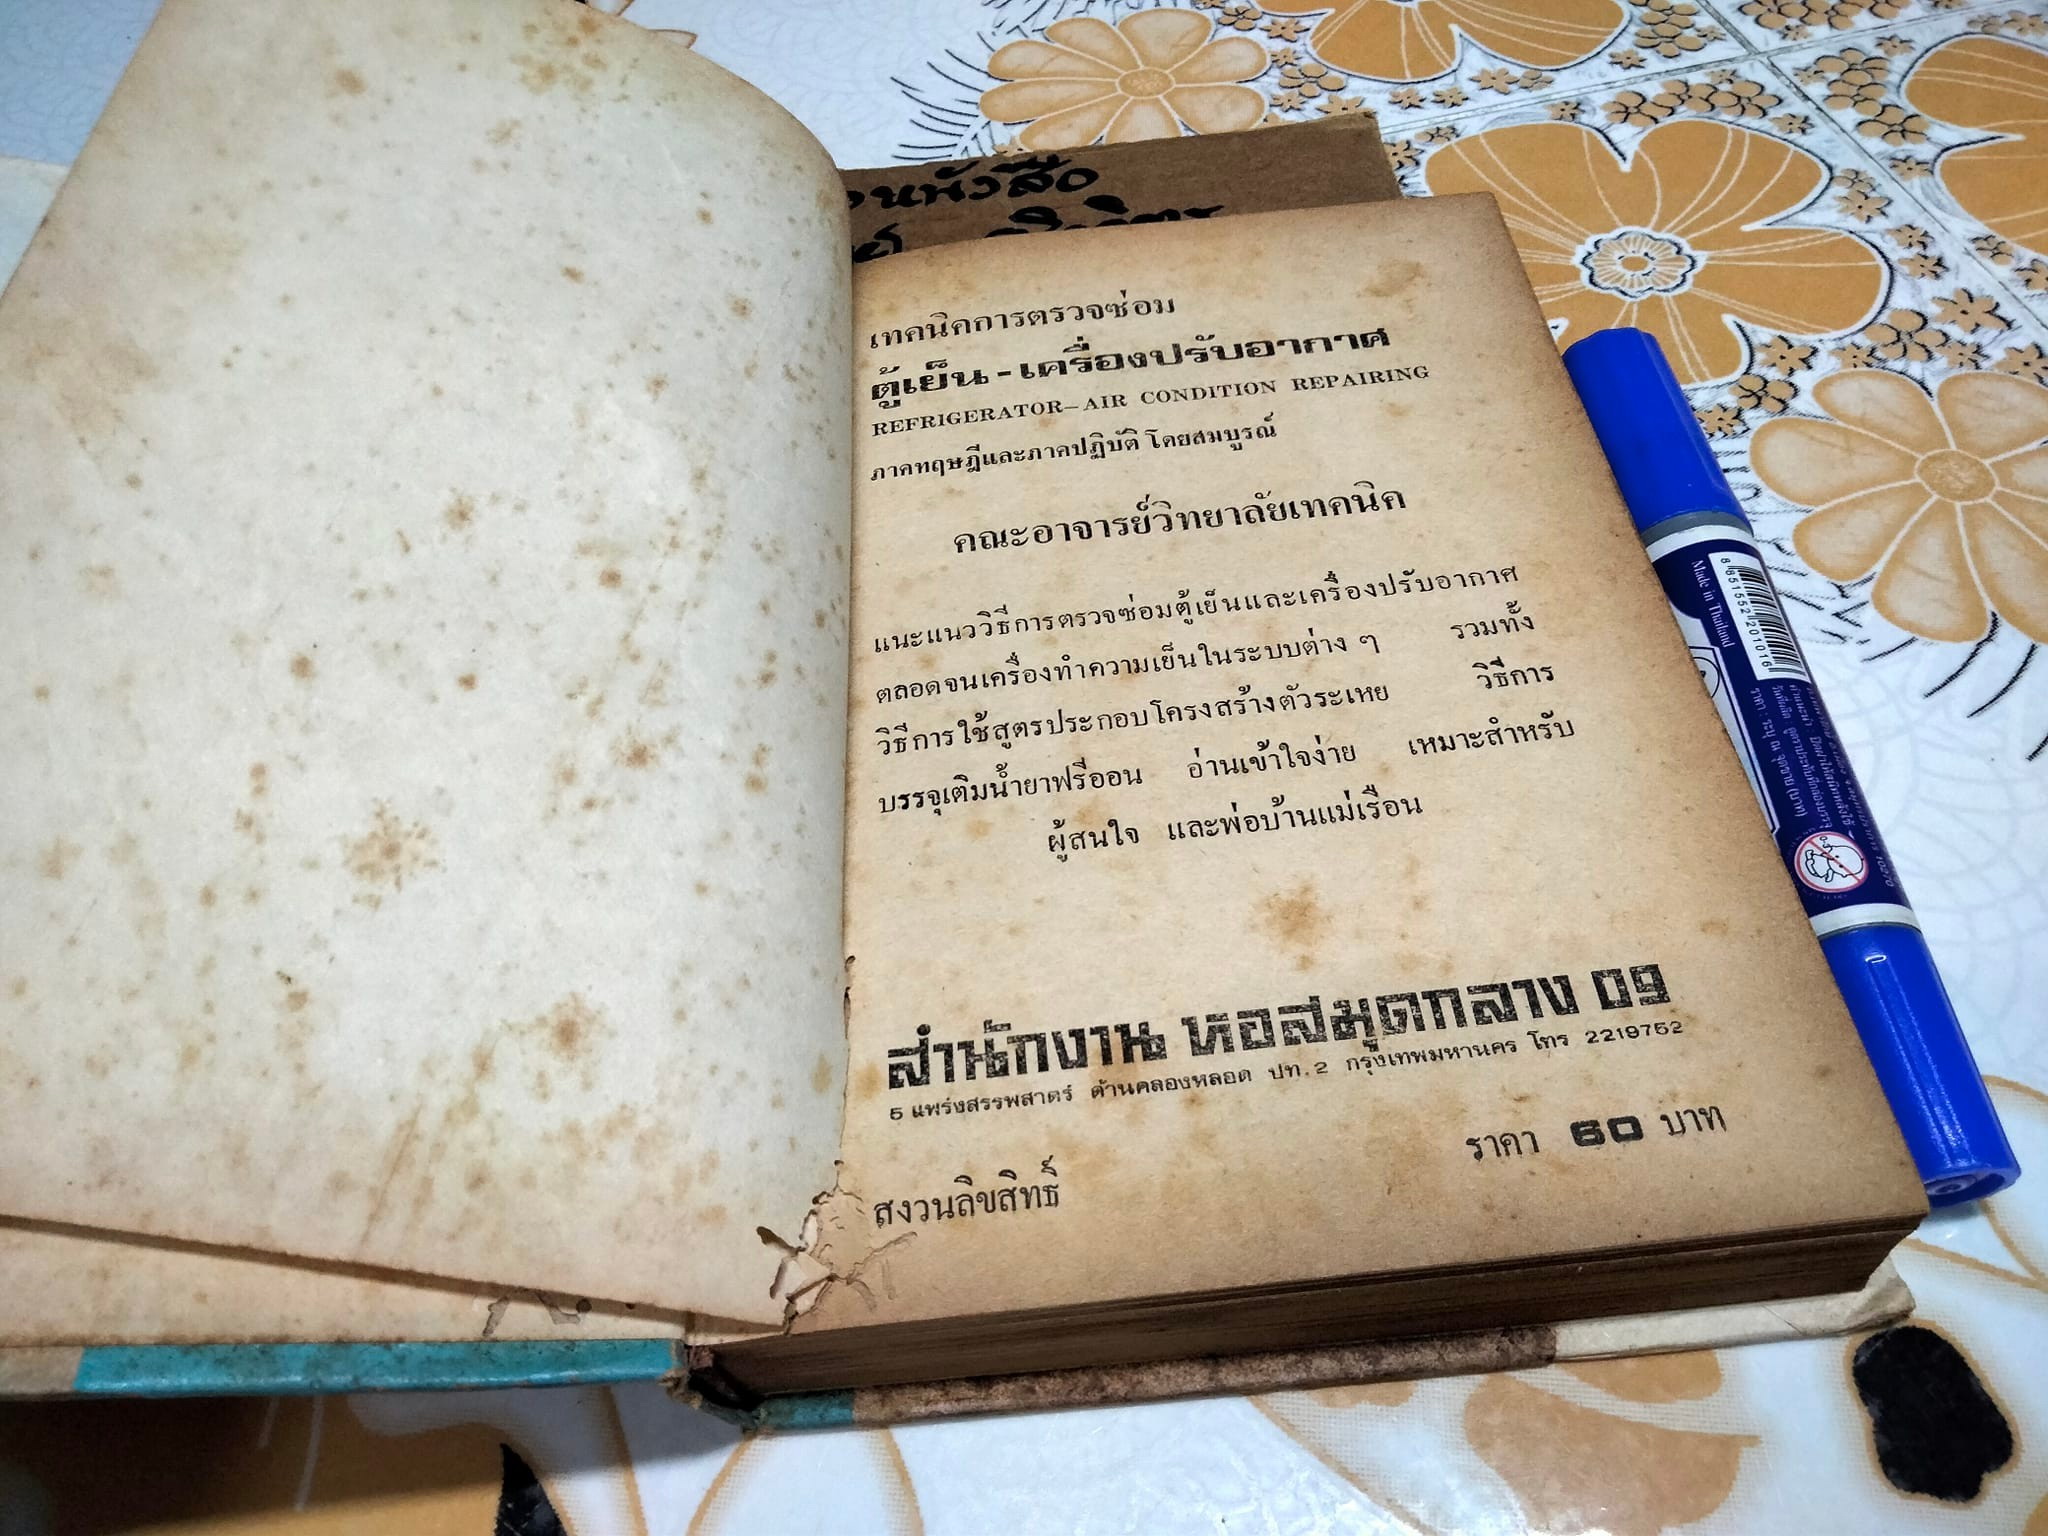 นหังสือ
เทคนิคการตรวจซ่อม
ตู้เย็น - เครื่องปรับอากาศ
REFRIGERATOR–AIR CONDITION REPAIRING
ภาคทฤษฎีและภาคปฏิบัติ โดยสมบูรณ์
คณะอาจารย์วิทยาลัยเทคนิค
แนะแนววิธีการตรวจซ่อมตู้เย็นและเครื่องปรับอากาศ
ตลอดจนเครื่องทำความเย็นในระบบต่าง ๆ รวมทั้ง
วิธีการใช้สูตรประกอบโครงสร้างตัวระเหย วิธีการ
บรรจุเติมน้ำยาฟรีออน อ่านเข้าใจง่าย เหมาะสำหรับ
ผู้สนใจ และพ่อบ้านแม่เรือน
สำนักงาน หอสมุดกลาง 09
5 แพร่งสรรพสาตร์ ด้านคลองหลอด ปท.2 กรุงเทพมหานคร โทร 2219752
ราคา 60 บาท
สงวนลิขสิทธิ์
Made in Thailand
8 851552 201016